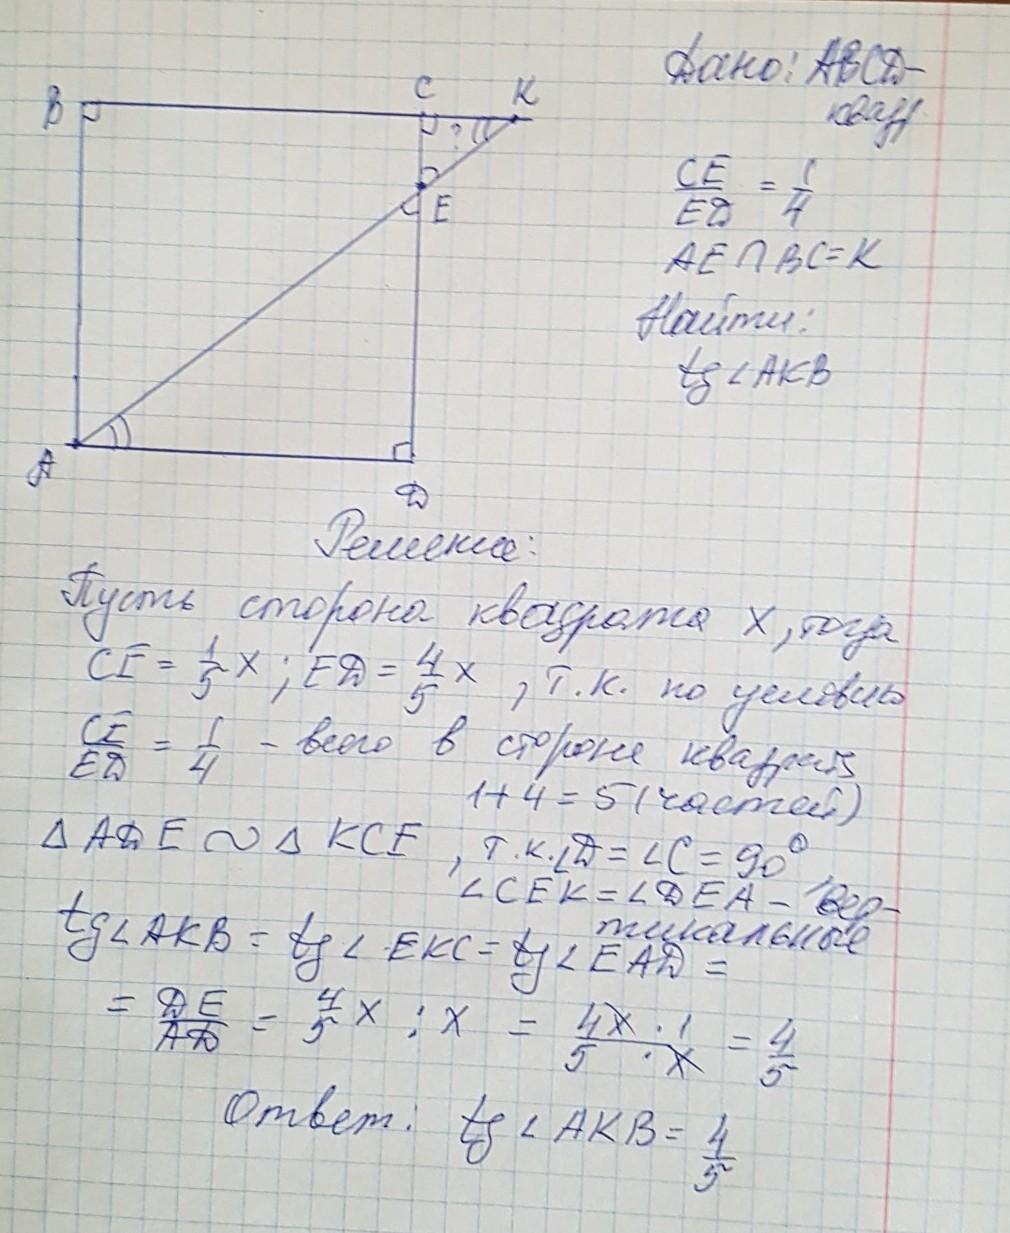 B
C
K
?
E
A
D
Дано: ABCD-
квадр.
CE/ED = 1/4
AE ∩ BC = K
Найти:
tg ∠ AKB
Решение:
Пусть сторона квадрата x, тогда
CE = 1/5 x ; ED = 4/5 x , т.к. по условию
CE/ED = 1/4 - всего в стороне квадрата
1+4 = 5 (частей)
△ ADE ∾ △ KCE , т.к. ∠D = ∠C = 90°,
∠CEK = ∠DEA - вер-
тикальные
tg ∠ AKB = tg ∠ EKC = tg ∠ EAD =
= DE/AD = 4/5 x : x = 4x · 1 / 5 · x = 4/5
Ответ: tg ∠ AKB = 4/5